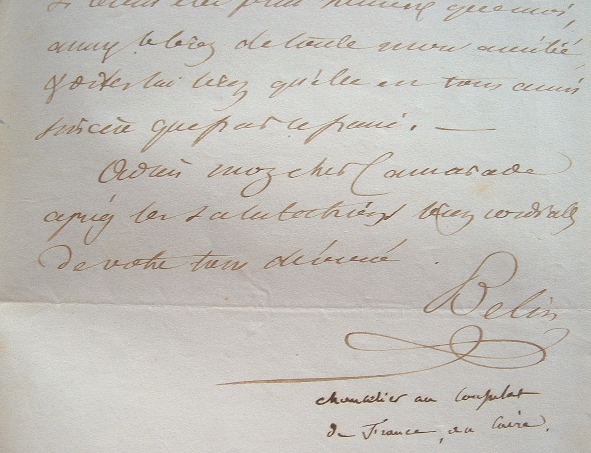 plus heureux que moi,
de toute mon amitié,
dites lui bien qu'elle en tous aussi
sincère que par le passé. —
Adieu mon cher Camarade
après les salutations bien cordiales
de votre tout dévoué.
Belin
chancelier au Consulat
de France, au Caire.